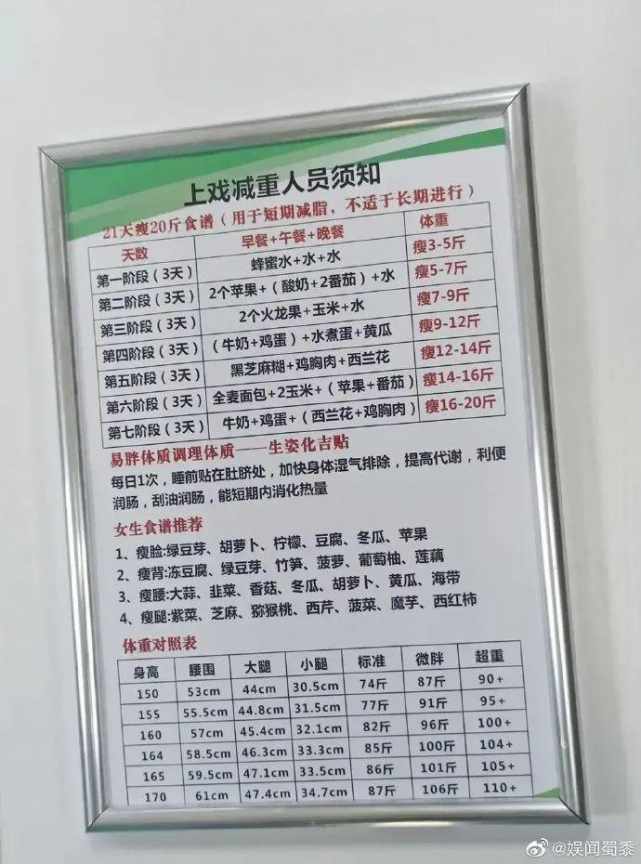 上戏减重人员须知
21天瘦20斤食谱（用于短期减脂，不适于长期进行）
天数 早餐+午餐+晚餐 体重
第一阶段（3天） 蜂蜜水+水+水 瘦3-5斤
第二阶段（3天） 2个苹果+（酸奶+2番茄）+水 瘦5-7斤
第三阶段（3天） 2个火龙果+玉米+水 瘦7-9斤
第四阶段（3天） （牛奶+鸡蛋）+水煮蛋+黄瓜 瘦9-12斤
第五阶段（3天） 黑芝麻糊+鸡胸肉+西兰花 瘦12-14斤
第六阶段（3天） 全麦面包+2玉米+（苹果+番茄） 瘦14-16斤
第七阶段（3天） 牛奶+鸡蛋+（西兰花+鸡胸肉） 瘦16-20斤
易胖体质调理体质——生姿化吉贴
每日1次，睡前贴在肚脐处，加快身体湿气排除，提高代谢，利便
润肠，刮油润肠，能短期内消化热量
女生食谱推荐
1、瘦脸:绿豆芽、胡萝卜、柠檬、豆腐、冬瓜、苹果
2、瘦背:冻豆腐、绿豆芽、竹笋、菠萝、葡萄柚、莲藕
3、瘦腰:大蒜、韭菜、香菇、冬瓜、胡萝卜、黄瓜、海带
4、瘦腿:紫菜、芝麻、猕猴桃、西芹、菠菜、魔芋、西红柿
体重对照表
身高 腰围 大腿 小腿 标准 微胖 超重
150 53cm 44cm 30.5cm 74斤 87斤 90+
155 55.5cm 44.8cm 31.5cm 77斤 91斤 95+
160 57cm 45.4cm 32.1cm 82斤 96斤 100+
164 58.5cm 46.3cm 33.3cm 85斤 100斤 104+
165 59.5cm 47.1cm 33.5cm 86斤 101斤 105+
170 61cm 47.4cm 34.7cm 87斤 106斤 110+
@娱闻蜀黍